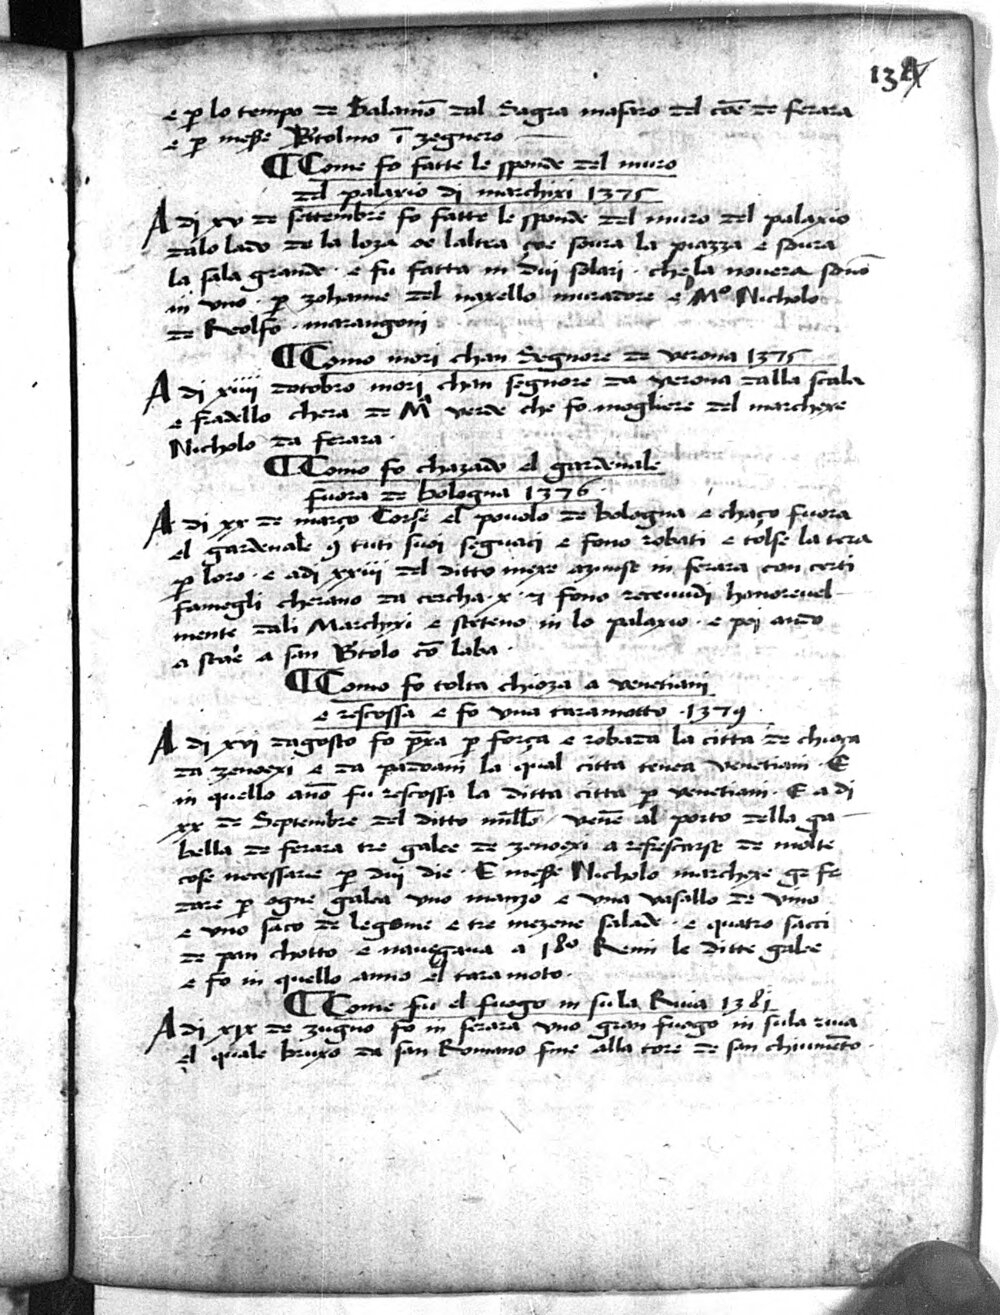 e p lo tempo de Galamo dal Sagra masaro del coe de ferara
e p messe Btolmo i zegnero
Come fo fatte le sponde del muro
del palaxio di marchixi 1375
A di xv de settembre fo fatte le sponde del muro del palaxio
dalo lado de la loza oe laltra çoe soura la piazza e soura
la sala grande · e fu fatta in dui solari · che la nouera
in vno · p zohanne del naxello muradore e Mº Nicholo
de · marangoni
Como mori chan segnore de verona 1375
A di xiiii dotobro mori chan segnore da verona dalla scala
e fradello chera de Mª verde che fo mogliere del marchexe
Nicholo da ferara ·
Como fo chazado el gardenale
fuora de bologna 1376
A di xx de março Corse el pouolo de bologna e chaço fuora
el gardenale 9 tuti suoi seguaci e fono robati e tolse la tera
p loro · e adi xxiii del ditto mexe azunse in ferara con certi
famegli cherano da cercha · x · fono receuudi honoreuel
mente dali Marchixi e steteno in lo palaxio · e poi ando
a stare a san Btolo co laba ·
Como fo tolta chioza a venetiani
e rescossa e fo vna taramotto · 1379 ·
A di xvi dagosto fo pxa p força e robada la citta de chioza
da zenoexi e da padoani la qual citta tenea venetiani · E
in quello ano fu rescossa la ditta citta p venetiani · E a di
xx de Septembre del ditto mllo · vene al porto della ga
bella de ferara tre galee de zenoexi a refrescarse de molte
cose necessarie p dui die · E messe Nicholo marchexe ge fe
dare p ogne galea vno manzo e vna vasallo de vino
e vno saco de legome e tre mezene salade · e quatro sacci
de pan chotto · e nauegaua a 180 Remi le ditte galee
e fo in quello anno el taramoto ·
Come fu el fuogo in su la Riua 1381
A di xix de zugno fo in ferara vno gran fuogo in su la riua
el quale bruxo da san Romano fine alla tore de san chiumento ·